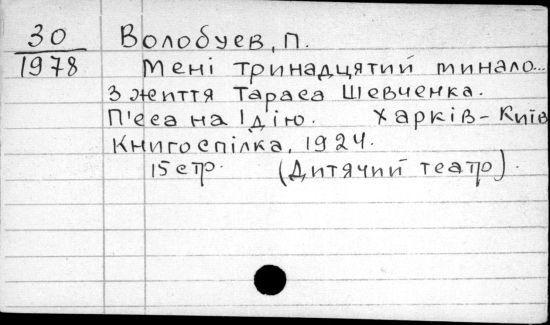 30 Волобуев, П.
1978 Мені тринадцятий минало...
З життя Тараса Шевченка.
П'єса на 1 дію. Харків - Київ
Книгоспілка, 1924.
15 стр. (Дитячий театр).